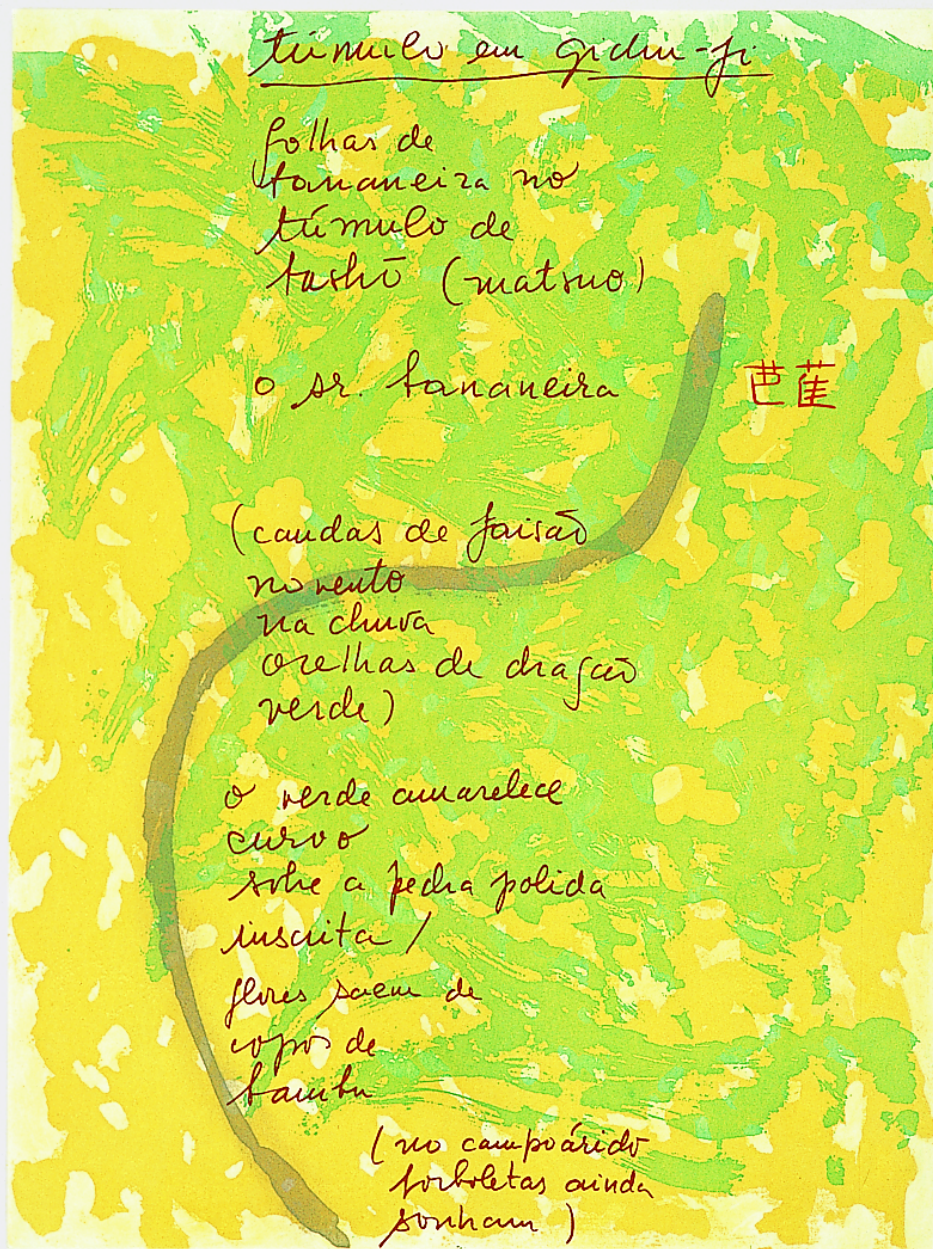 túmulo em gichu-ji
folhas de
bananeira no
túmulo de
bashō (matsuo)
o sr. bananeira 芭蕉
(caudas de faisão
no vento
na chuva
orelhas de dragão
verde)
o verde amarelece
curvo
sobre a pedra polida
inscrita /
flores saem de
copos de
bambu
(no campoárido
borboletas ainda
sonham)